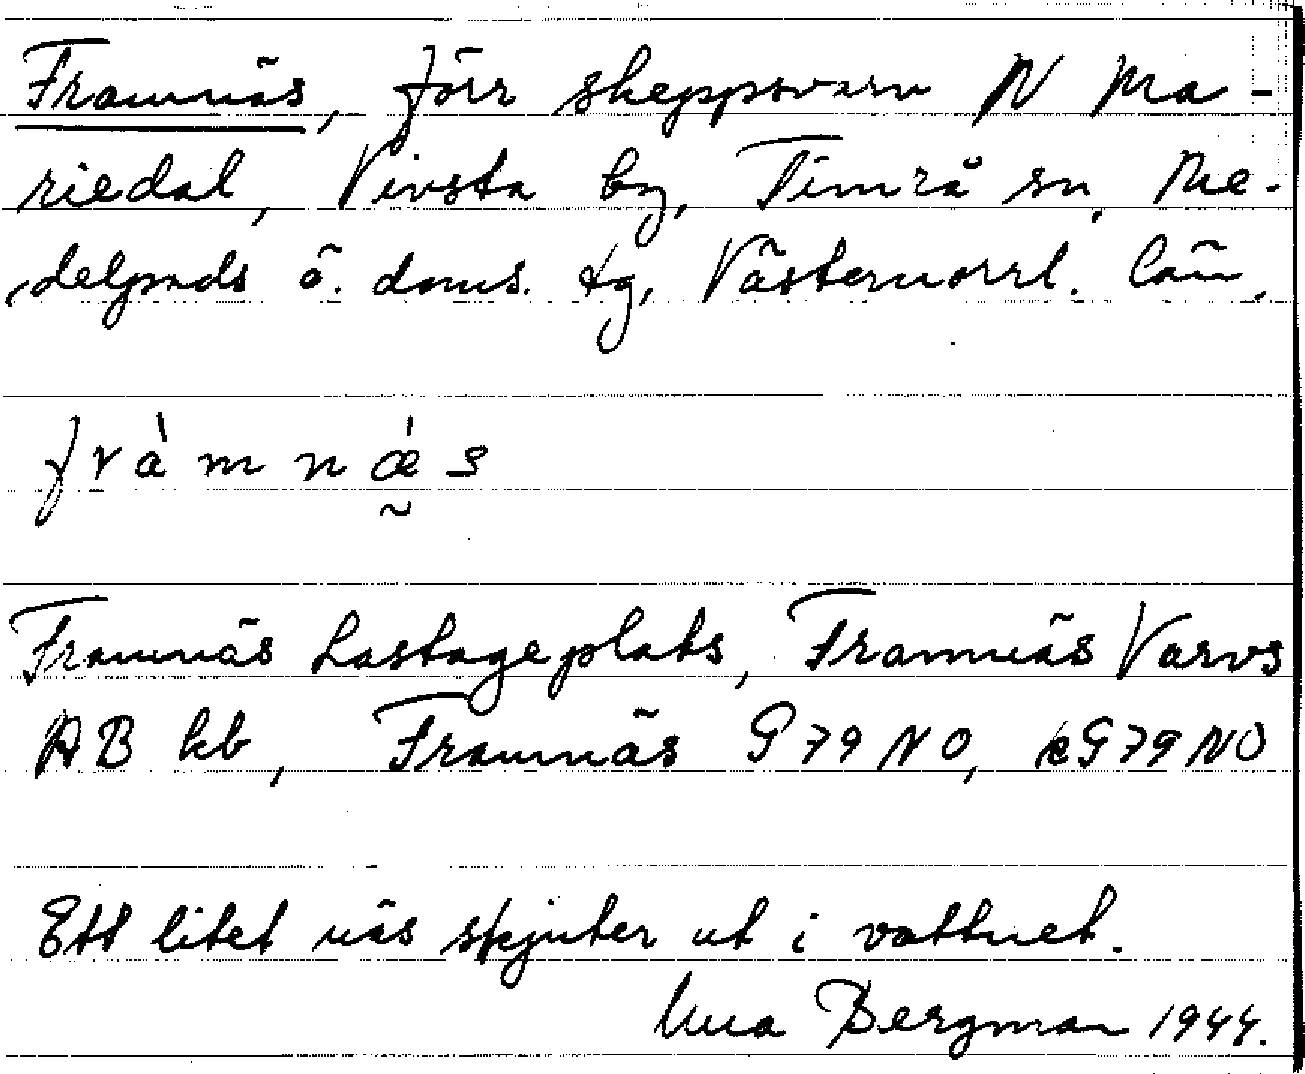 Framnäs, förr skeppsvarv N Ma-
riedal, Vivsta by, Timrå sn, Me-
delpads ö. doms. tg, Västernorrl. län.
fràmnǽ̰s
Framnäs Lastageplats, Framnäs Varvs
AB kb, Framnäs G79NO, kG79NO
Ett litet näs skjuter ut i vattnet.
Una Bergman 1944.